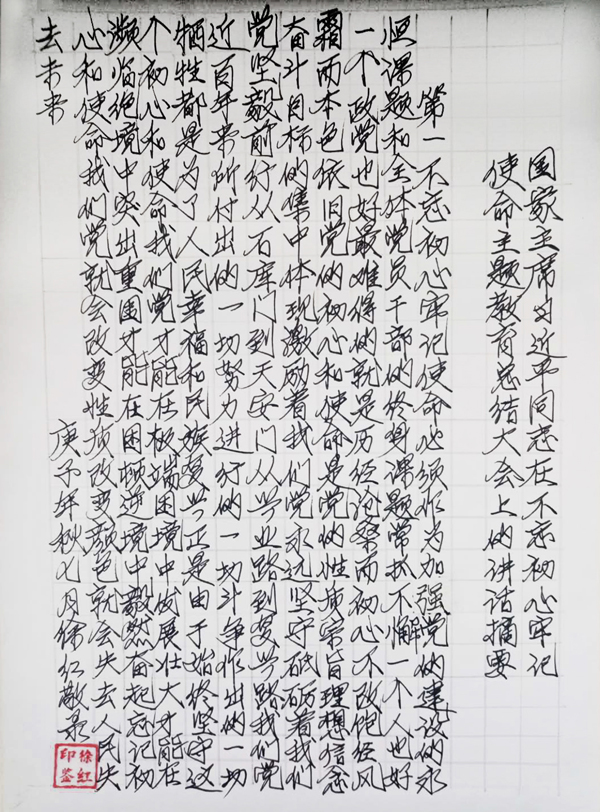 国家主席习近平同志在不忘初心牢记
使命主题教育总结大会上的讲话摘要
第一不忘初心牢记使命必须作为加强党的建设的永
恒课题和全体党员干部的终身课题常抓不懈一个人也好
一个政党也好最难得的就是历经沧桑而初心不改饱经风
霜而本色依旧党的初心和使命是党的性质宗旨理想信念
奋斗目标的集中体现激励着我们党永远坚守砥砺着我们
党坚毅前行从石库门到天安门从兴业路到复兴路我们党
近百年来所付出的一切努力进行的一切斗争作出的一切
牺牲都是为了人民幸福和民族复兴正是由于始终坚守这
个初心和使命我们党才能在极端困境中发展壮大才能在
濒临绝境中突出重围才能在困顿逆境中毅然奋起忘记初
心和使命我们党就会改变性质改变颜色就会失去人民失
去未来
庚子年秋七月徐红敬录
徐红印鉴